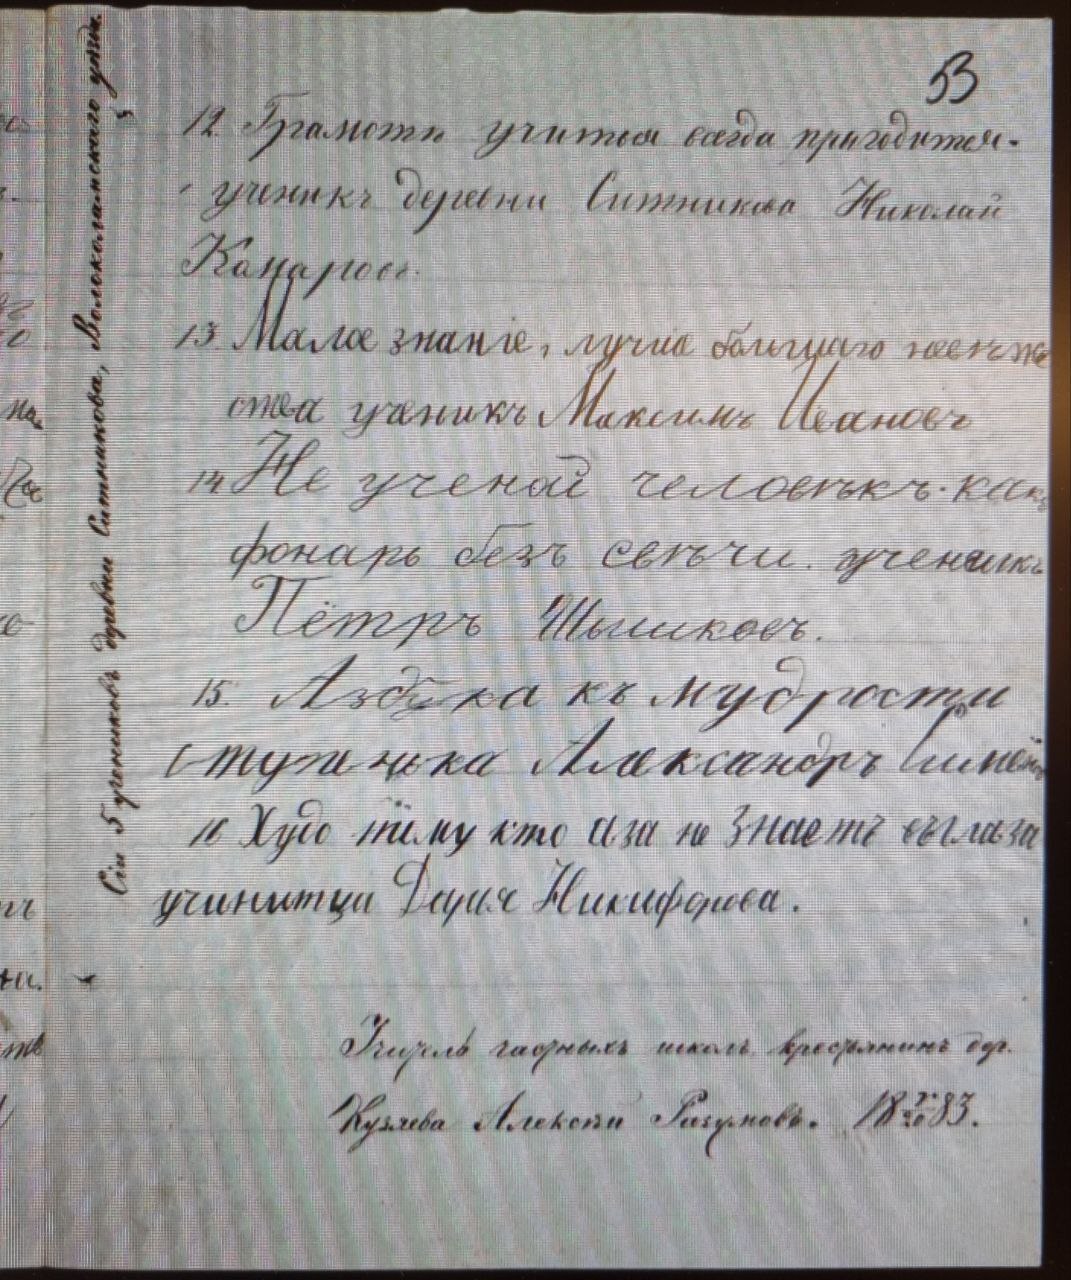 53
12. Грамоти учитья всегда пригодится.
ученикъ деревни Ситникова Николай
13. Малое знаніе, лучше большаго невѣже
ства ученикъ Максимъ Ивановъ
14 Не ученой человѣкъ. какъ
фонарь безъ свѣчи. ученикъ
Пётръ Шышковъ.
15. Азбука къ мудрости
ступенька Александръ
16 Худо тѣму кто аза не знаетъ въ глаза
Дарья Никифорова.
Учитель частныхъ школъ крестьянинъ дер.
Кузяева Алексѣй Разумовъ. 18 83.
Сіи 5 учениковъ деревни Ситникова, Волоколамскаго уѣзда.